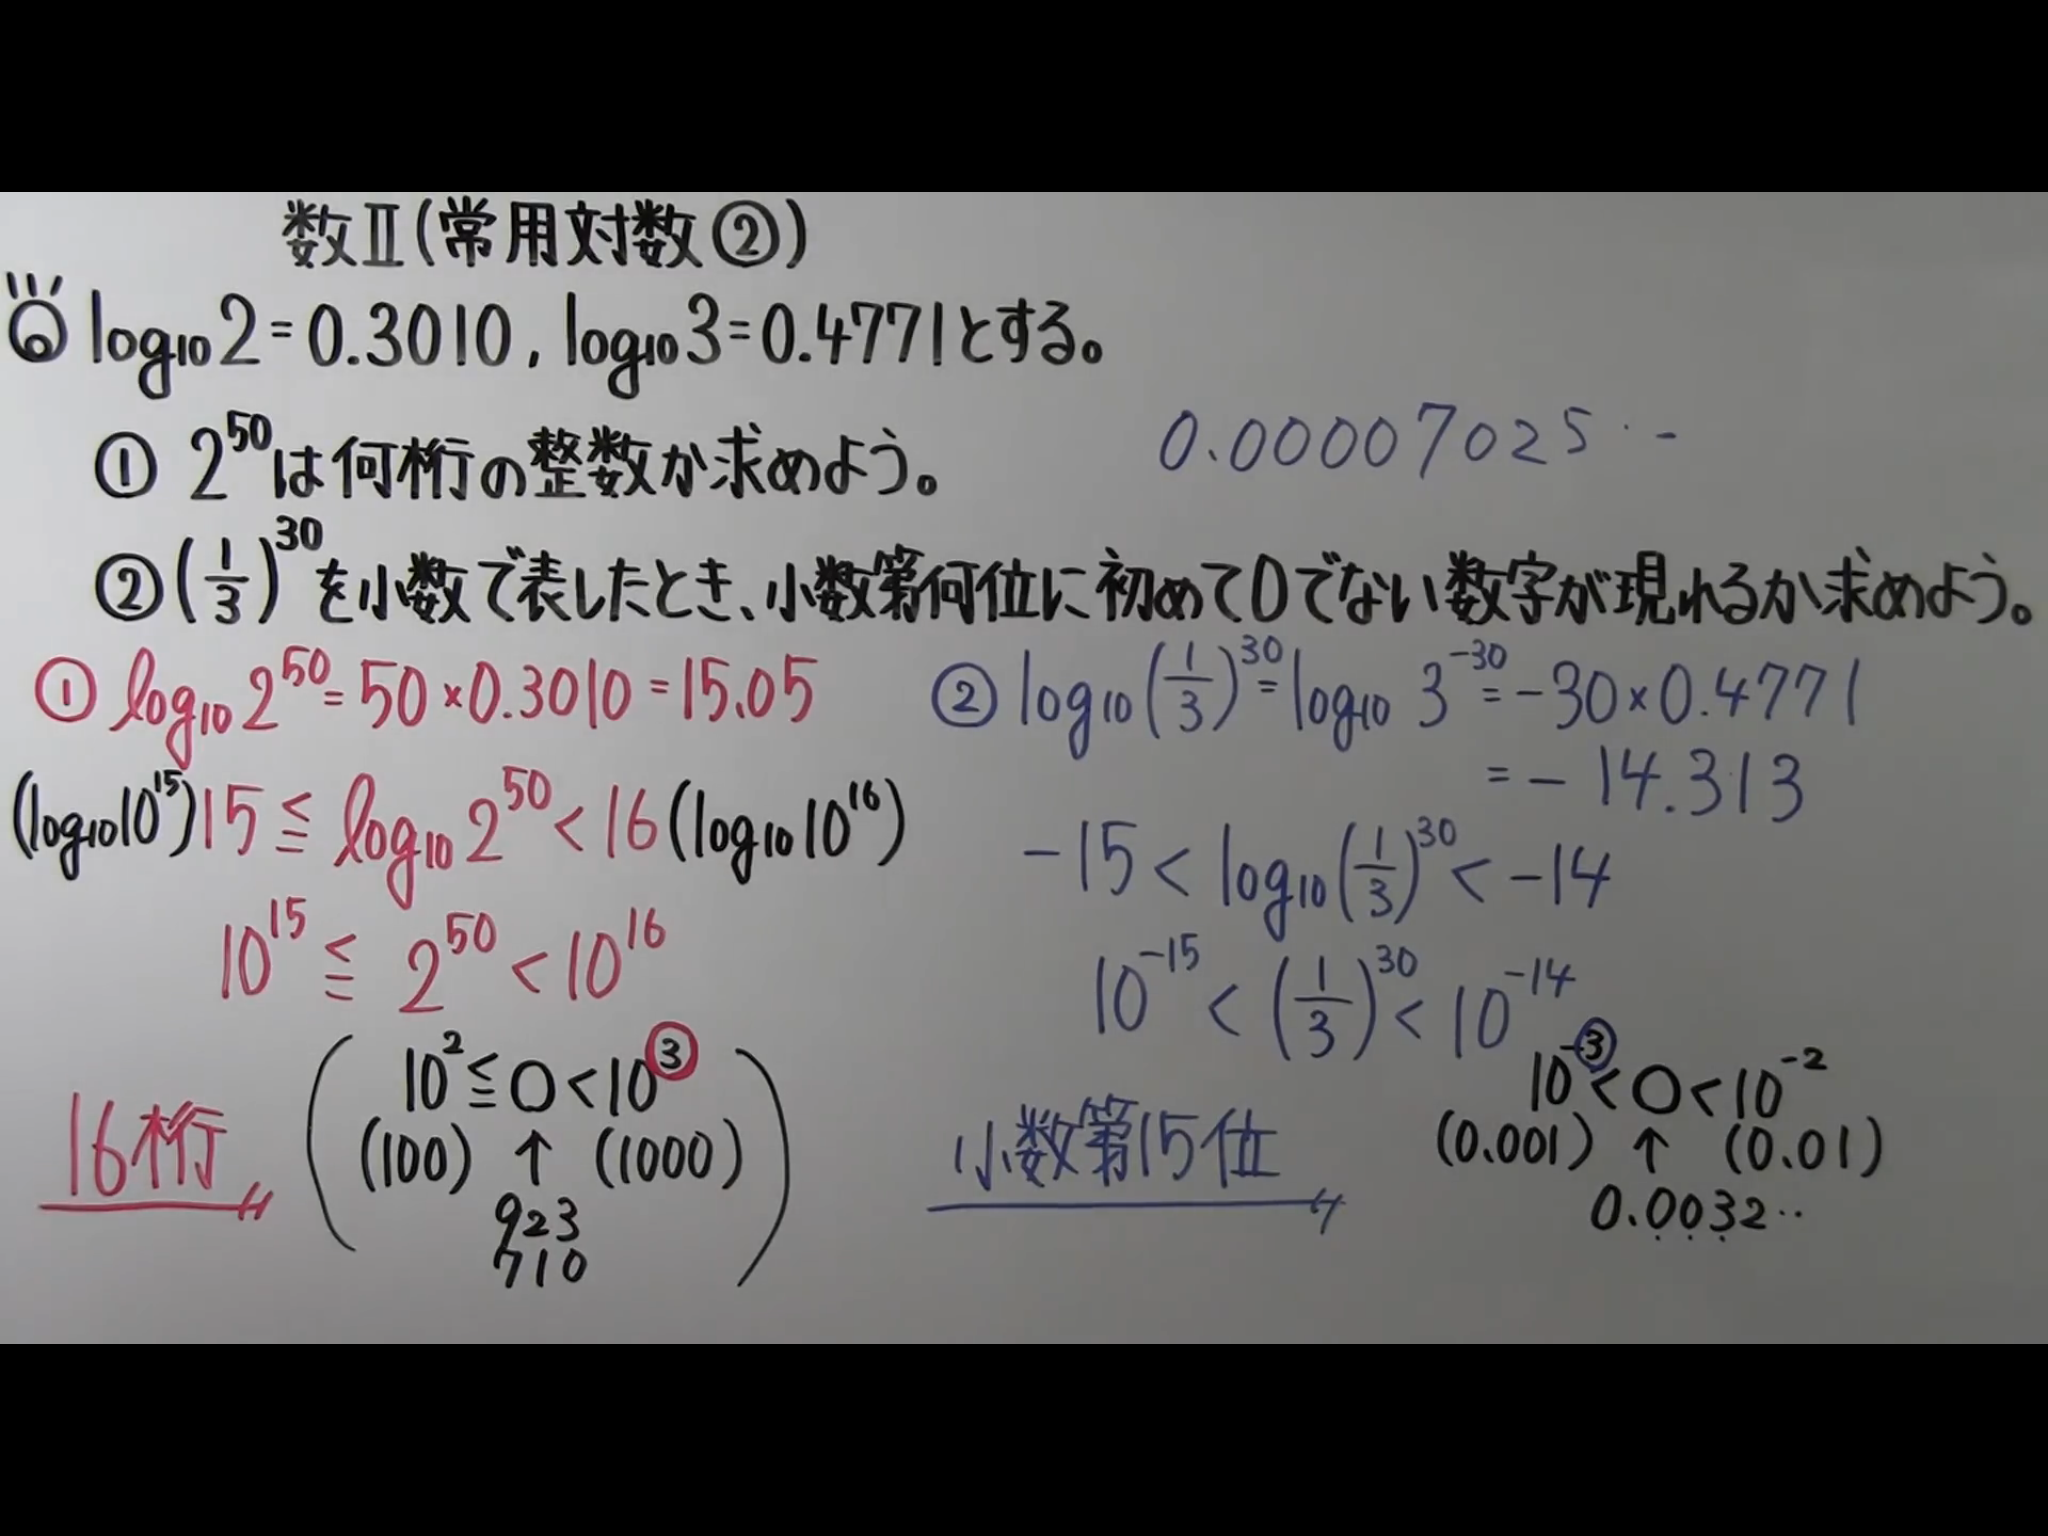 数Ⅱ(常用対数②)
log₁₀2=0.3010, log₁₀3=0.4771とする。
① 2⁵⁰は何桁の整数か求めよう。
0.00007025‥‐
②(1/3)³⁰を小数で表したとき、小数第何位に初めて0でない数字が現れるか求めよう。
① log₁₀2⁵⁰=50×0.3010=15.05
(log₁₀10¹⁵)15≦log₁₀2⁵⁰<16(log₁₀10¹⁶)
10¹⁵≦2⁵⁰<10¹⁶
16桁
(10²≦○<10³)
(100)↑(1000)
923
710
② log₁₀(1/3)³⁰=log₁₀3⁻³⁰=-30×0.4771
=-14.313
-15<log₁₀(1/3)³⁰<-14
10⁻¹⁵<(1/3)³⁰<10⁻¹⁴
小数第15位
10⁻³<○<10⁻²
(0.001)↑(0.01)
0.0032‥